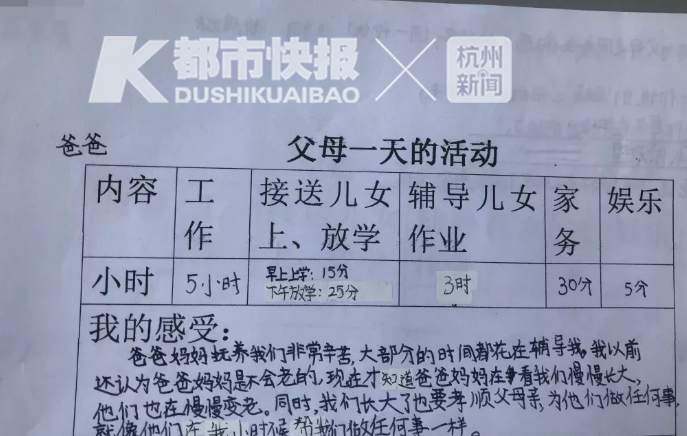 都市快报
DUSHIKUAIBAO
杭州
新闻
爸爸
父母一天的活动
内容 工作 接送儿女上、放学 辅导儿女作业 家务 娱乐
小时 5小时 早上上学:15分 下午放学:25分 3时 30分 5分
我的感受:
爸爸妈妈抚养我们非常辛苦,大部分的时间都花在辅导我。我以前
还认为爸爸妈妈是不会老的,现在才知道爸爸妈妈在看我们慢慢长大,
他们也在慢慢变老。同时,我们长大了也要孝顺父母亲,为他们做任何事,
就像他们在我小时候帮我们做任何事一样。